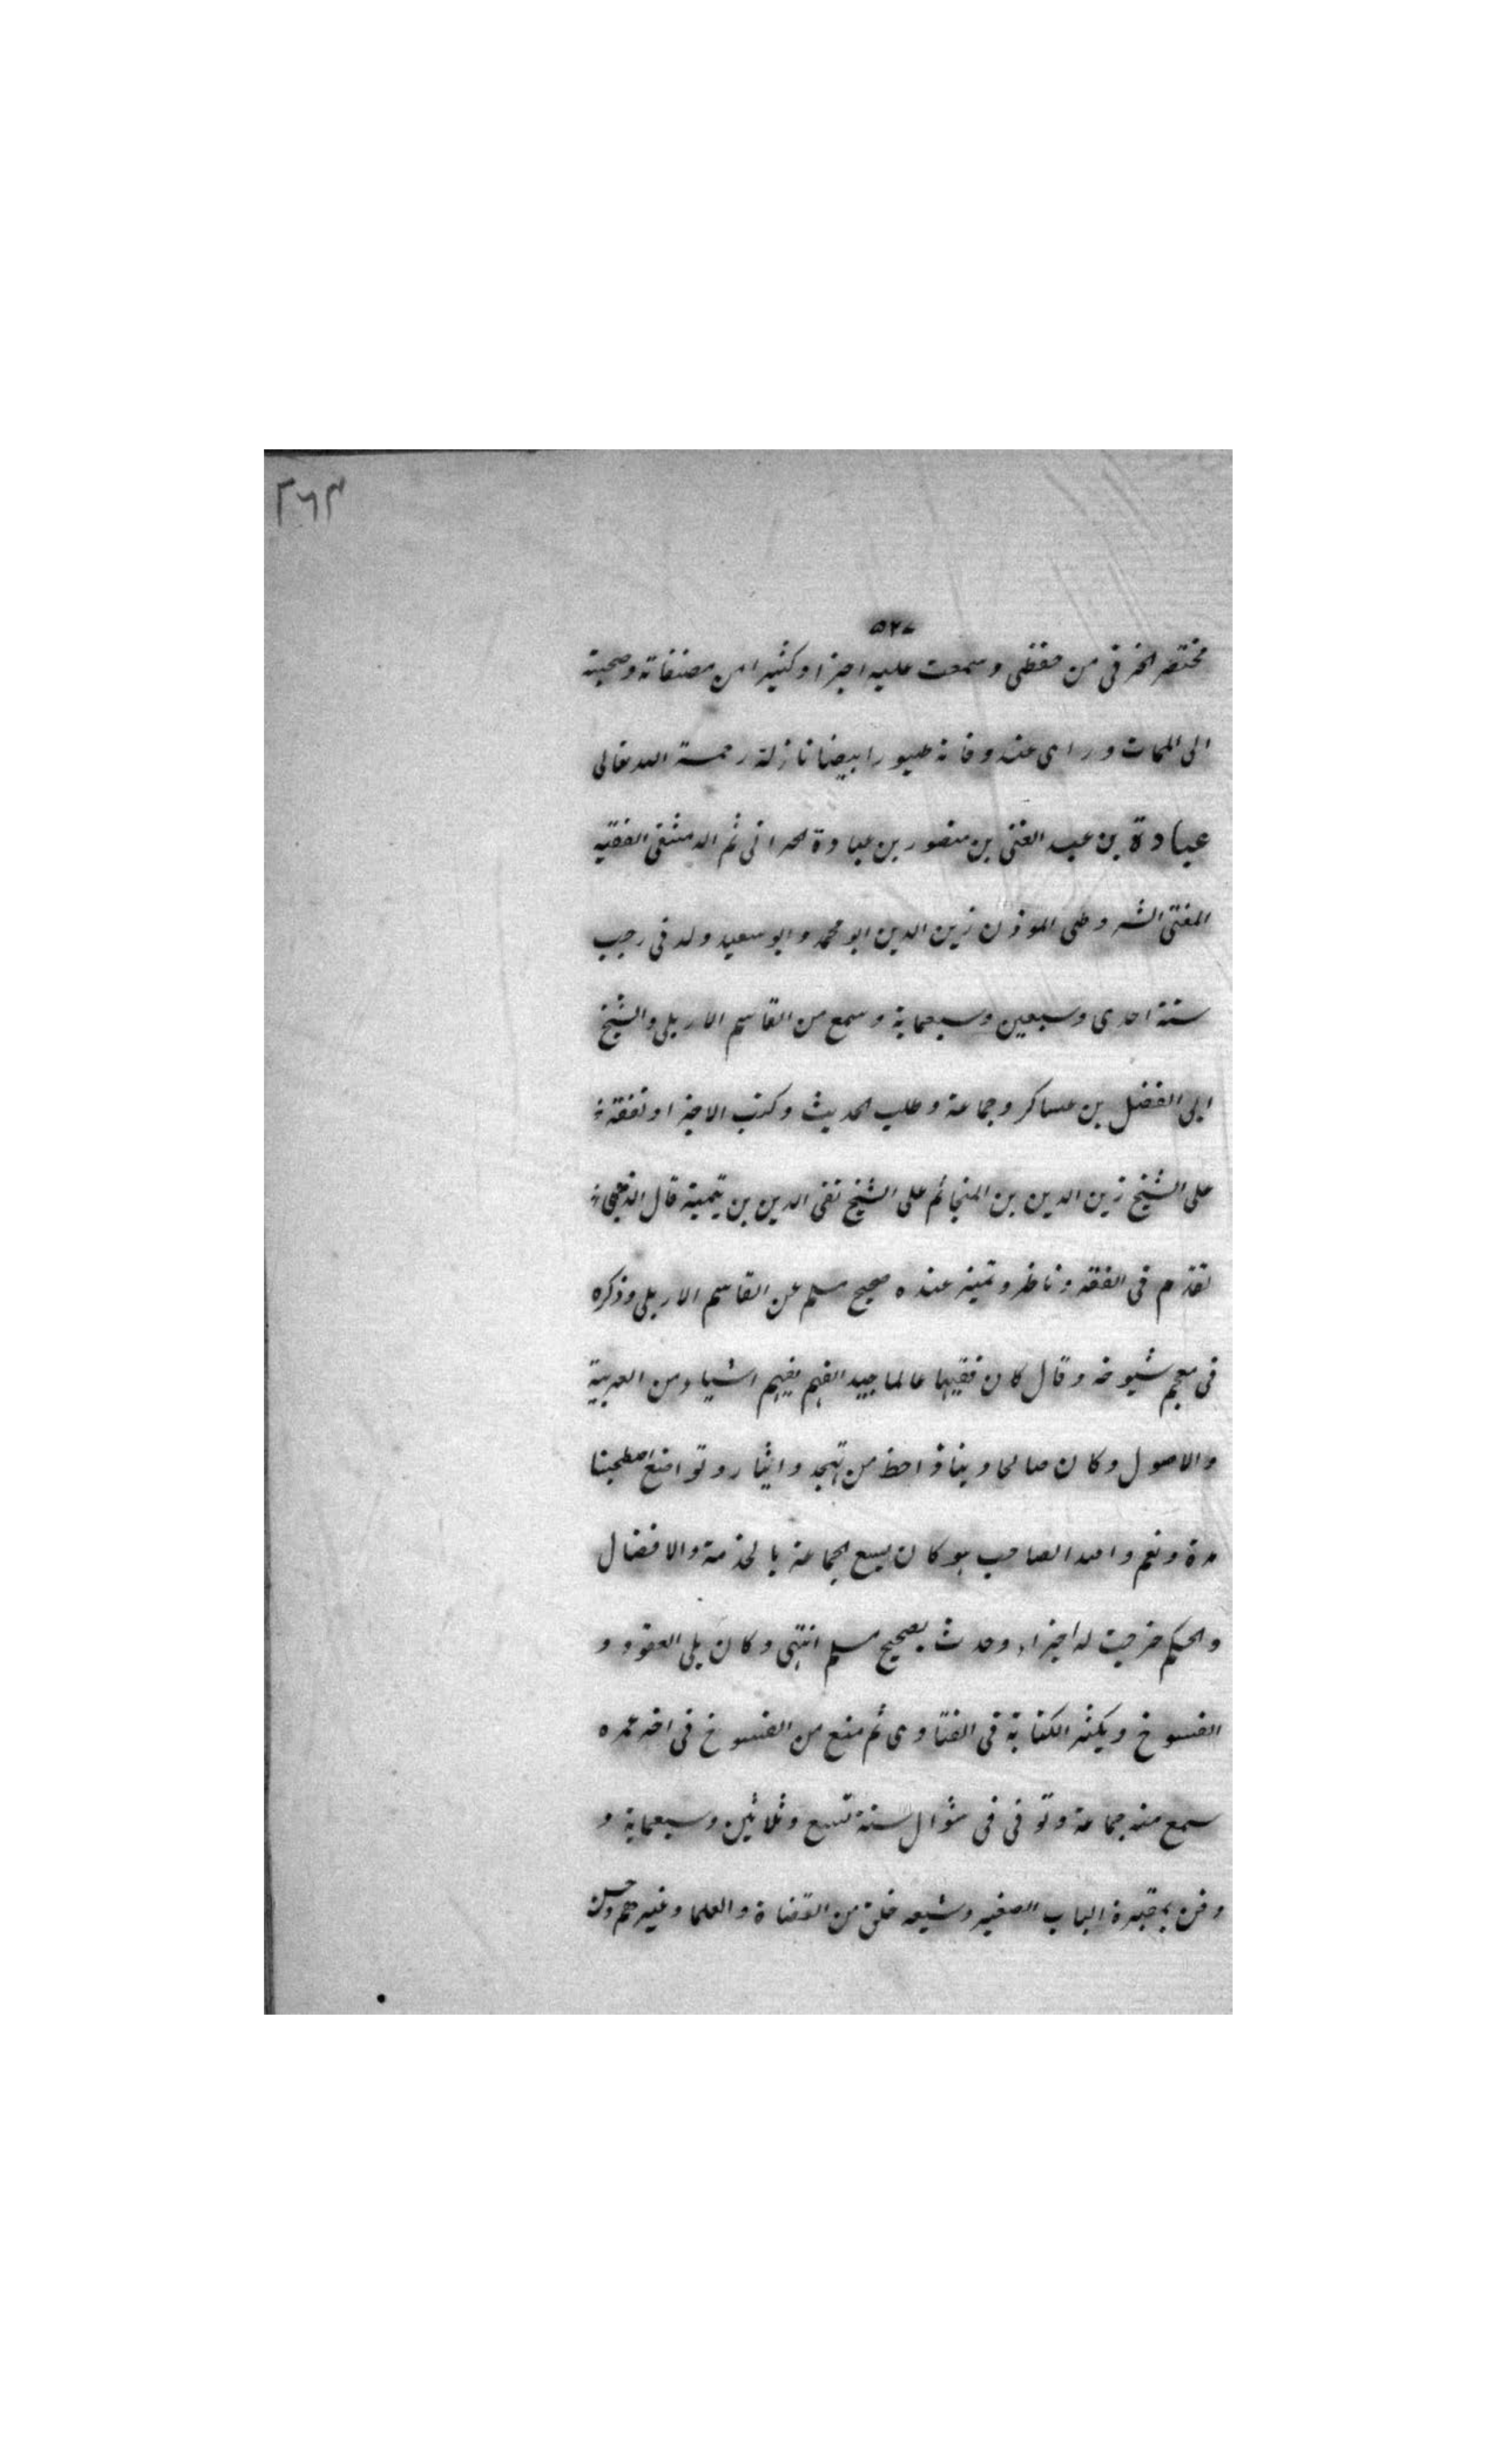 ٣٦٣
٥٢٧
مختصر الخرقى من حفظى وسمعت عليه اجزا وكثيرا من مصنفاته وصحبته
الى الممات وراى عند وفاته طيورا بيضا نازلة رحمة الله تعالى
عبادة بن عبد الغنى بن منصور بن عبادة الحرانى ثم الدمشقى الفقيه
المفتى الشروطى الموذن زين الدين ابو محمد وابو سعيد ولد فى رجب
سنة احدى وسبعين وسبعماية وسمع من القاسم الاربلى والشيخ
ابى الفضل بن عساكر وجماعة وطلب الحديث وكتب الاجزا وتفقه
على الشيخ زين الدين بن المنجا ثم على الشيخ تقى الدين بن تيمية قال الذهبى
تقدم فى الفقه وناظر وتميز عنده صحيح مسلم عن القاسم الاربلى وذكره
فى معجم شيوخه وقال كان فقيها عالما جيد الفهم يفهم اشياء من العربية
والاصول وكان صالحا دينا ذا حظ من تهجد وايثار وتواضع اصطحبنا
مدة ونعم والله الصاحب هو كان يسع الجماعة بالخدمة والافضال
والحكم خرجت له اجزاء وحدث بصحيح مسلم انتهى وكان يلى العقود و
الفسوخ ويكثر الكتابة فى الفتاوى ثم منع من الفسوخ فى اخر عمره
سمع منه جماعة وتوفى فى شوال سنة تسع وثلاثين وسبعماية و
دفن بمقبرة الباب الصغير وشيعه خلق من القضاة والعلما وغيرهم وحسن